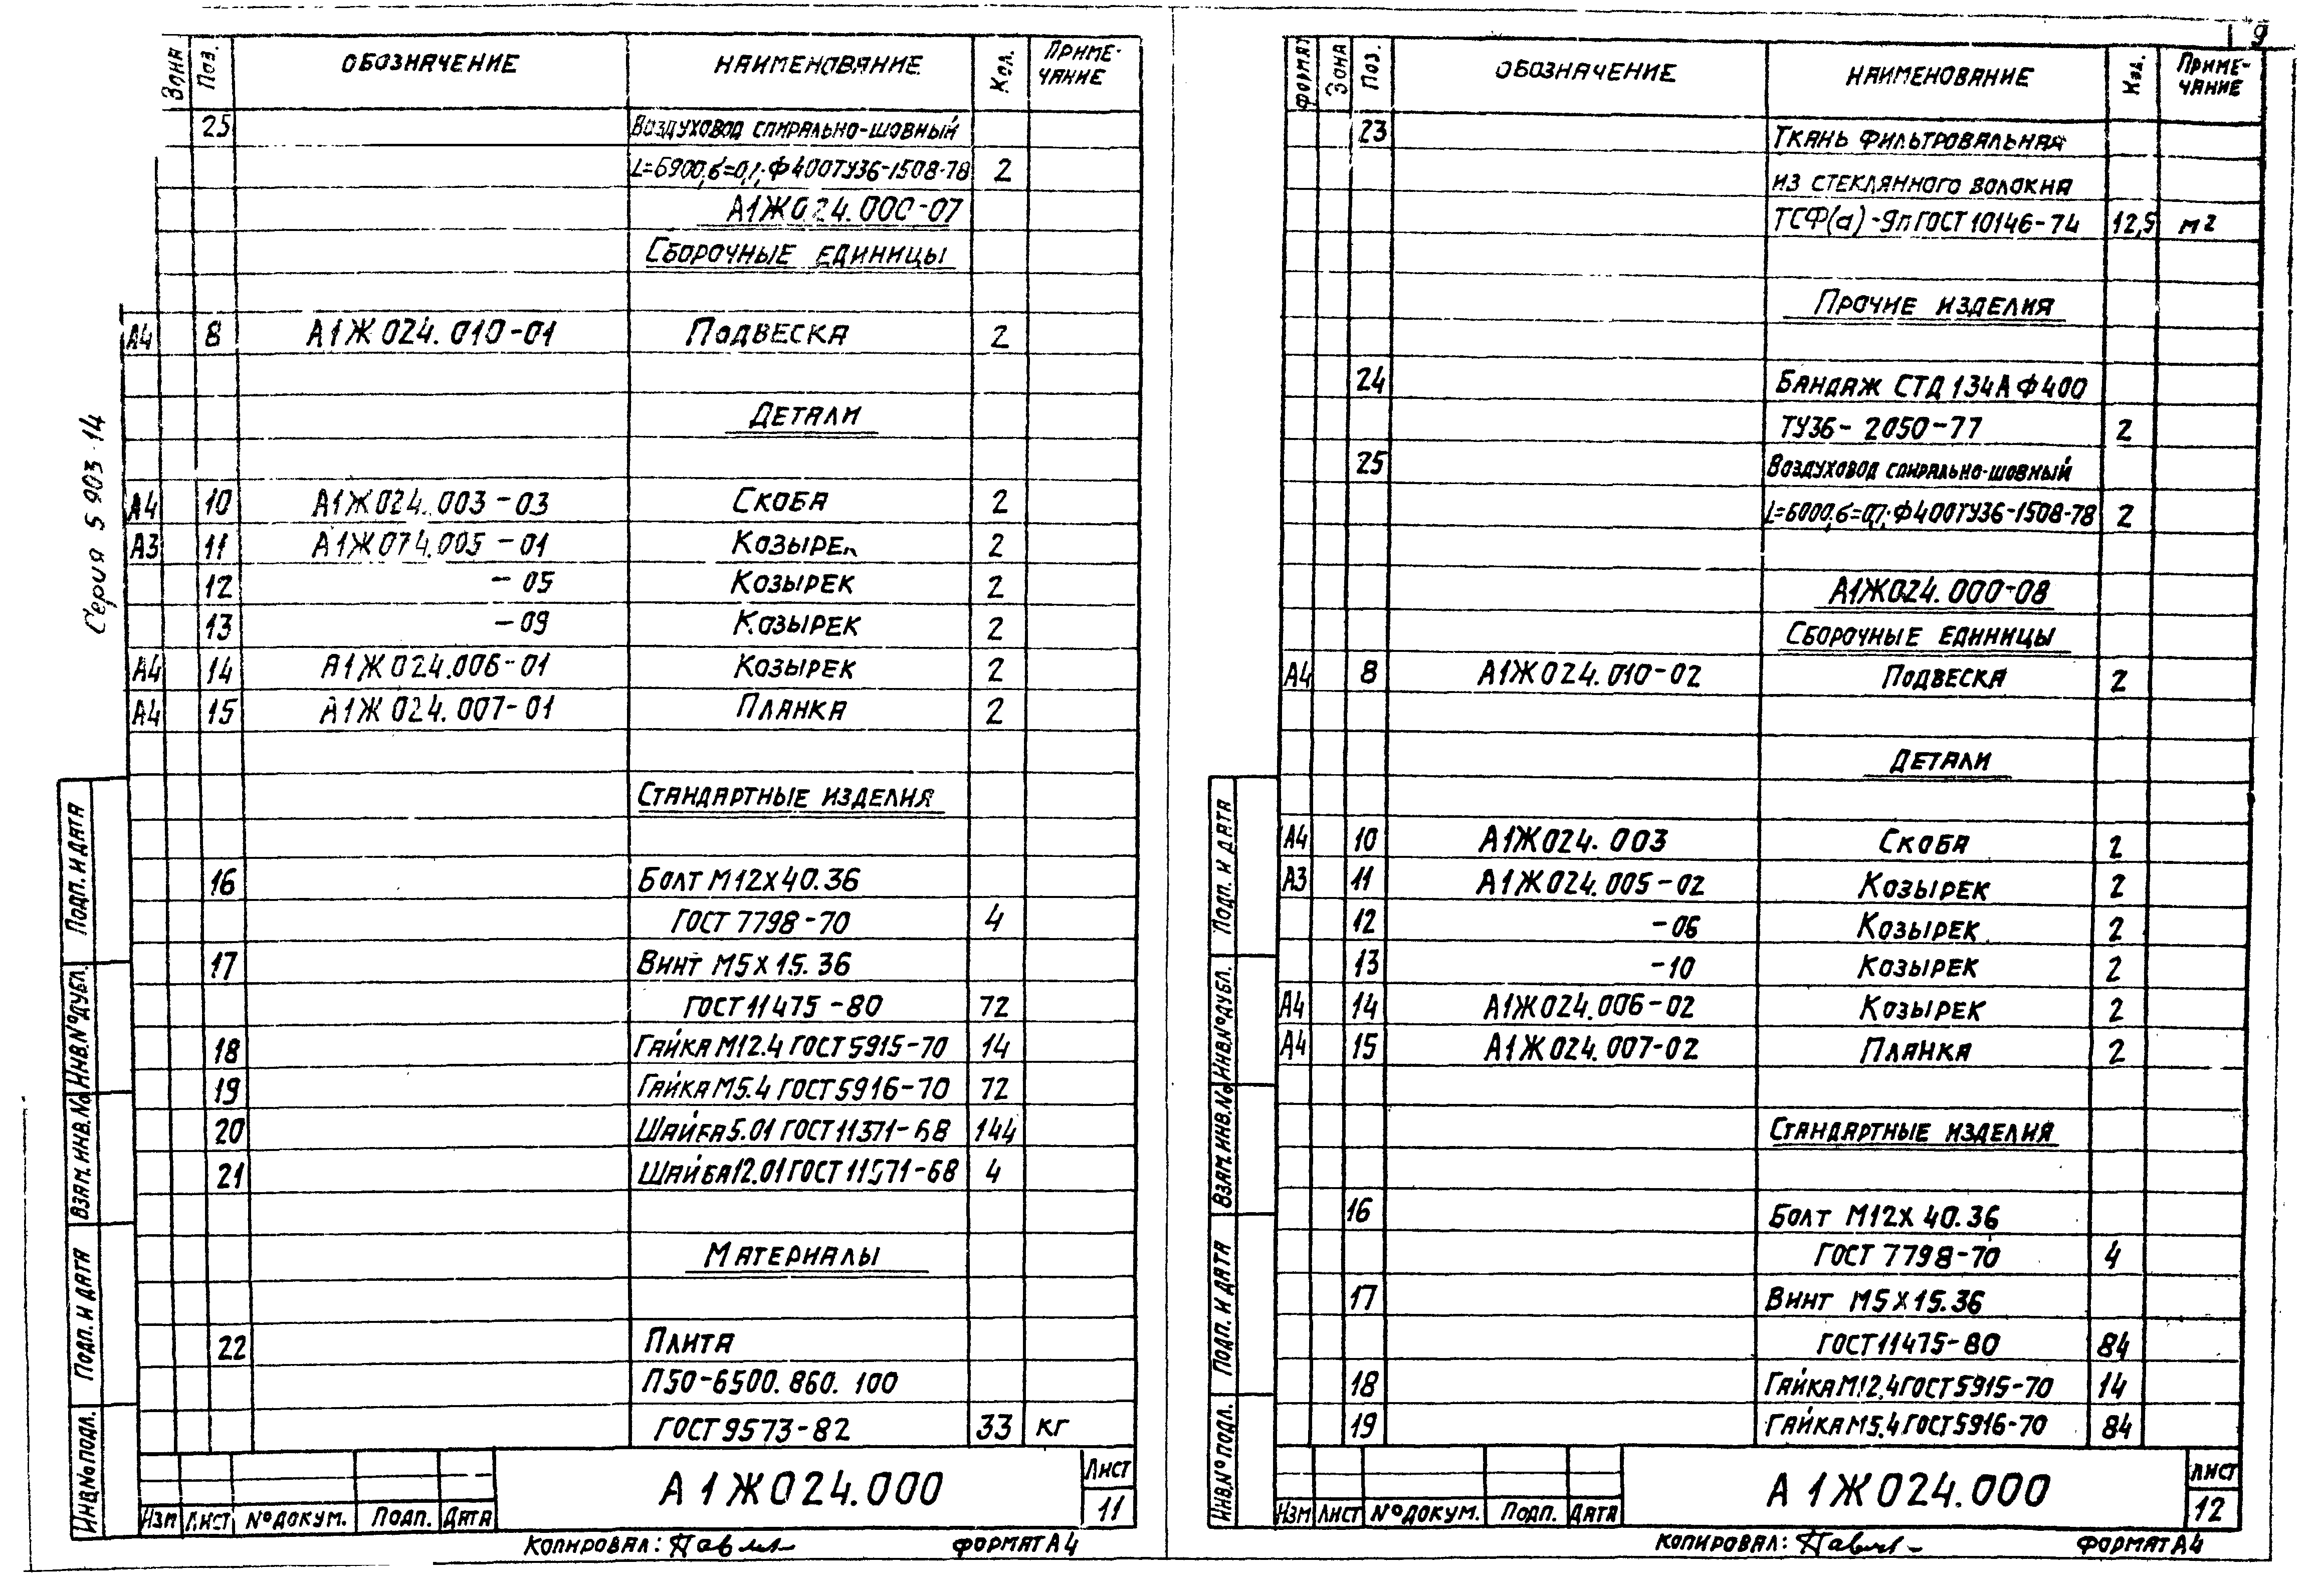 Зона Поз. ОБОЗНАЧЕНИЕ НАИМЕНОВАНИЕ Кол. ПРИМЕ-
ЧАНИЕ
25 Воздуховод спирально-шовный
L=6900, б=0,7; Ф400ТУ36-1508-78 2
А1Ж024.000-07
СБОРОЧНЫЕ ЕДИНИЦЫ
А4 8 А1Ж024.010-01 ПОДВЕСКА 2
ДЕТАЛИ
А4 10 А1Ж024.003-03 СКОБА 2
А3 11 А1Ж074.005-01 КОЗЫРЕК 2
12 -05 КОЗЫРЕК 2
13 -09 КОЗЫРЕК 2
А4 14 А1Ж024.006-01 КОЗЫРЕК 2
А4 15 А1Ж024.007-01 ПЛАНКА 2
СТАНДАРТНЫЕ ИЗДЕЛИЯ
16 БОЛТ М12Х40.36
ГОСТ 7798-70 4
17 ВИНТ М5Х15.36
ГОСТ 11475-80 72
18 ГАЙКА М12.4 ГОСТ 5915-70 14
19 ГАЙКА М5.4 ГОСТ 5916-70 72
20 ШАЙБА 5.01 ГОСТ 11371-68 144
21 ШАЙБА 12.01 ГОСТ 11371-68 4
МАТЕРИАЛЫ
22 ПЛИТА
П50-6500.860.100
ГОСТ 9573-82 33 кг
А1Ж024.000
ЛИСТ
11
ИЗМ ЛИСТ №ДОКУМ. ПОДП. ДАТА
КОПИРОВАЛ: ФОРМАТ А4
Серия 5 903-14
ПОДП. И ДАТА
ИНВ.№ДУБЛ.
ВЗАМ.ИНВ.№
ПОДП. И ДАТА
ИНВ.№ПОДЛ.
9
ФОРМАТ ЗОНА Поз. ОБОЗНАЧЕНИЕ НАИМЕНОВАНИЕ Кол. ПРИМЕ-
ЧАНИЕ
23 ТКАНЬ ФИЛЬТРОВАЛЬНАЯ
ИЗ СТЕКЛЯННОГО ВОЛОКНА
ТСФ(а)-9п ГОСТ 10146-74 12,5 м2
ПРОЧИЕ ИЗДЕЛИЯ
24 БАНДАЖ СТД 134А Ф400
ТУ36-2050-77 2
25 Воздуховод спирально-шовный
L=6000, б=0,7; Ф400ТУ36-1508-78 2
А1Ж024.000-08
СБОРОЧНЫЕ ЕДИНИЦЫ
А4 8 А1Ж024.010-02 ПОДВЕСКА 2
ДЕТАЛИ
А4 10 А1Ж024.003 СКОБА 2
А3 11 А1Ж024.005-02 КОЗЫРЕК 2
12 -06 КОЗЫРЕК 2
13 -10 КОЗЫРЕК 2
А4 14 А1Ж024.006-02 КОЗЫРЕК 2
А4 15 А1Ж024.007-02 ПЛАНКА 2
СТАНДАРТНЫЕ ИЗДЕЛИЯ
16 БОЛТ М12Х40.36
ГОСТ 7798-70 4
17 ВИНТ М5Х15.36
ГОСТ 11475-80 84
18 ГАЙКА М12.4 ГОСТ 5915-70 14
19 ГАЙКА М5.4 ГОСТ 5916-70 84
А1Ж024.000
ЛИСТ
12
ИЗМ ЛИСТ №ДОКУМ. ПОДП. ДАТА
КОПИРОВАЛ: ФОРМАТ А4
ПОДП. И ДАТА
ИНВ.№ДУБЛ.
ВЗАМ.ИНВ.№
ПОДП. И ДАТА
ИНВ.№ПОДЛ.